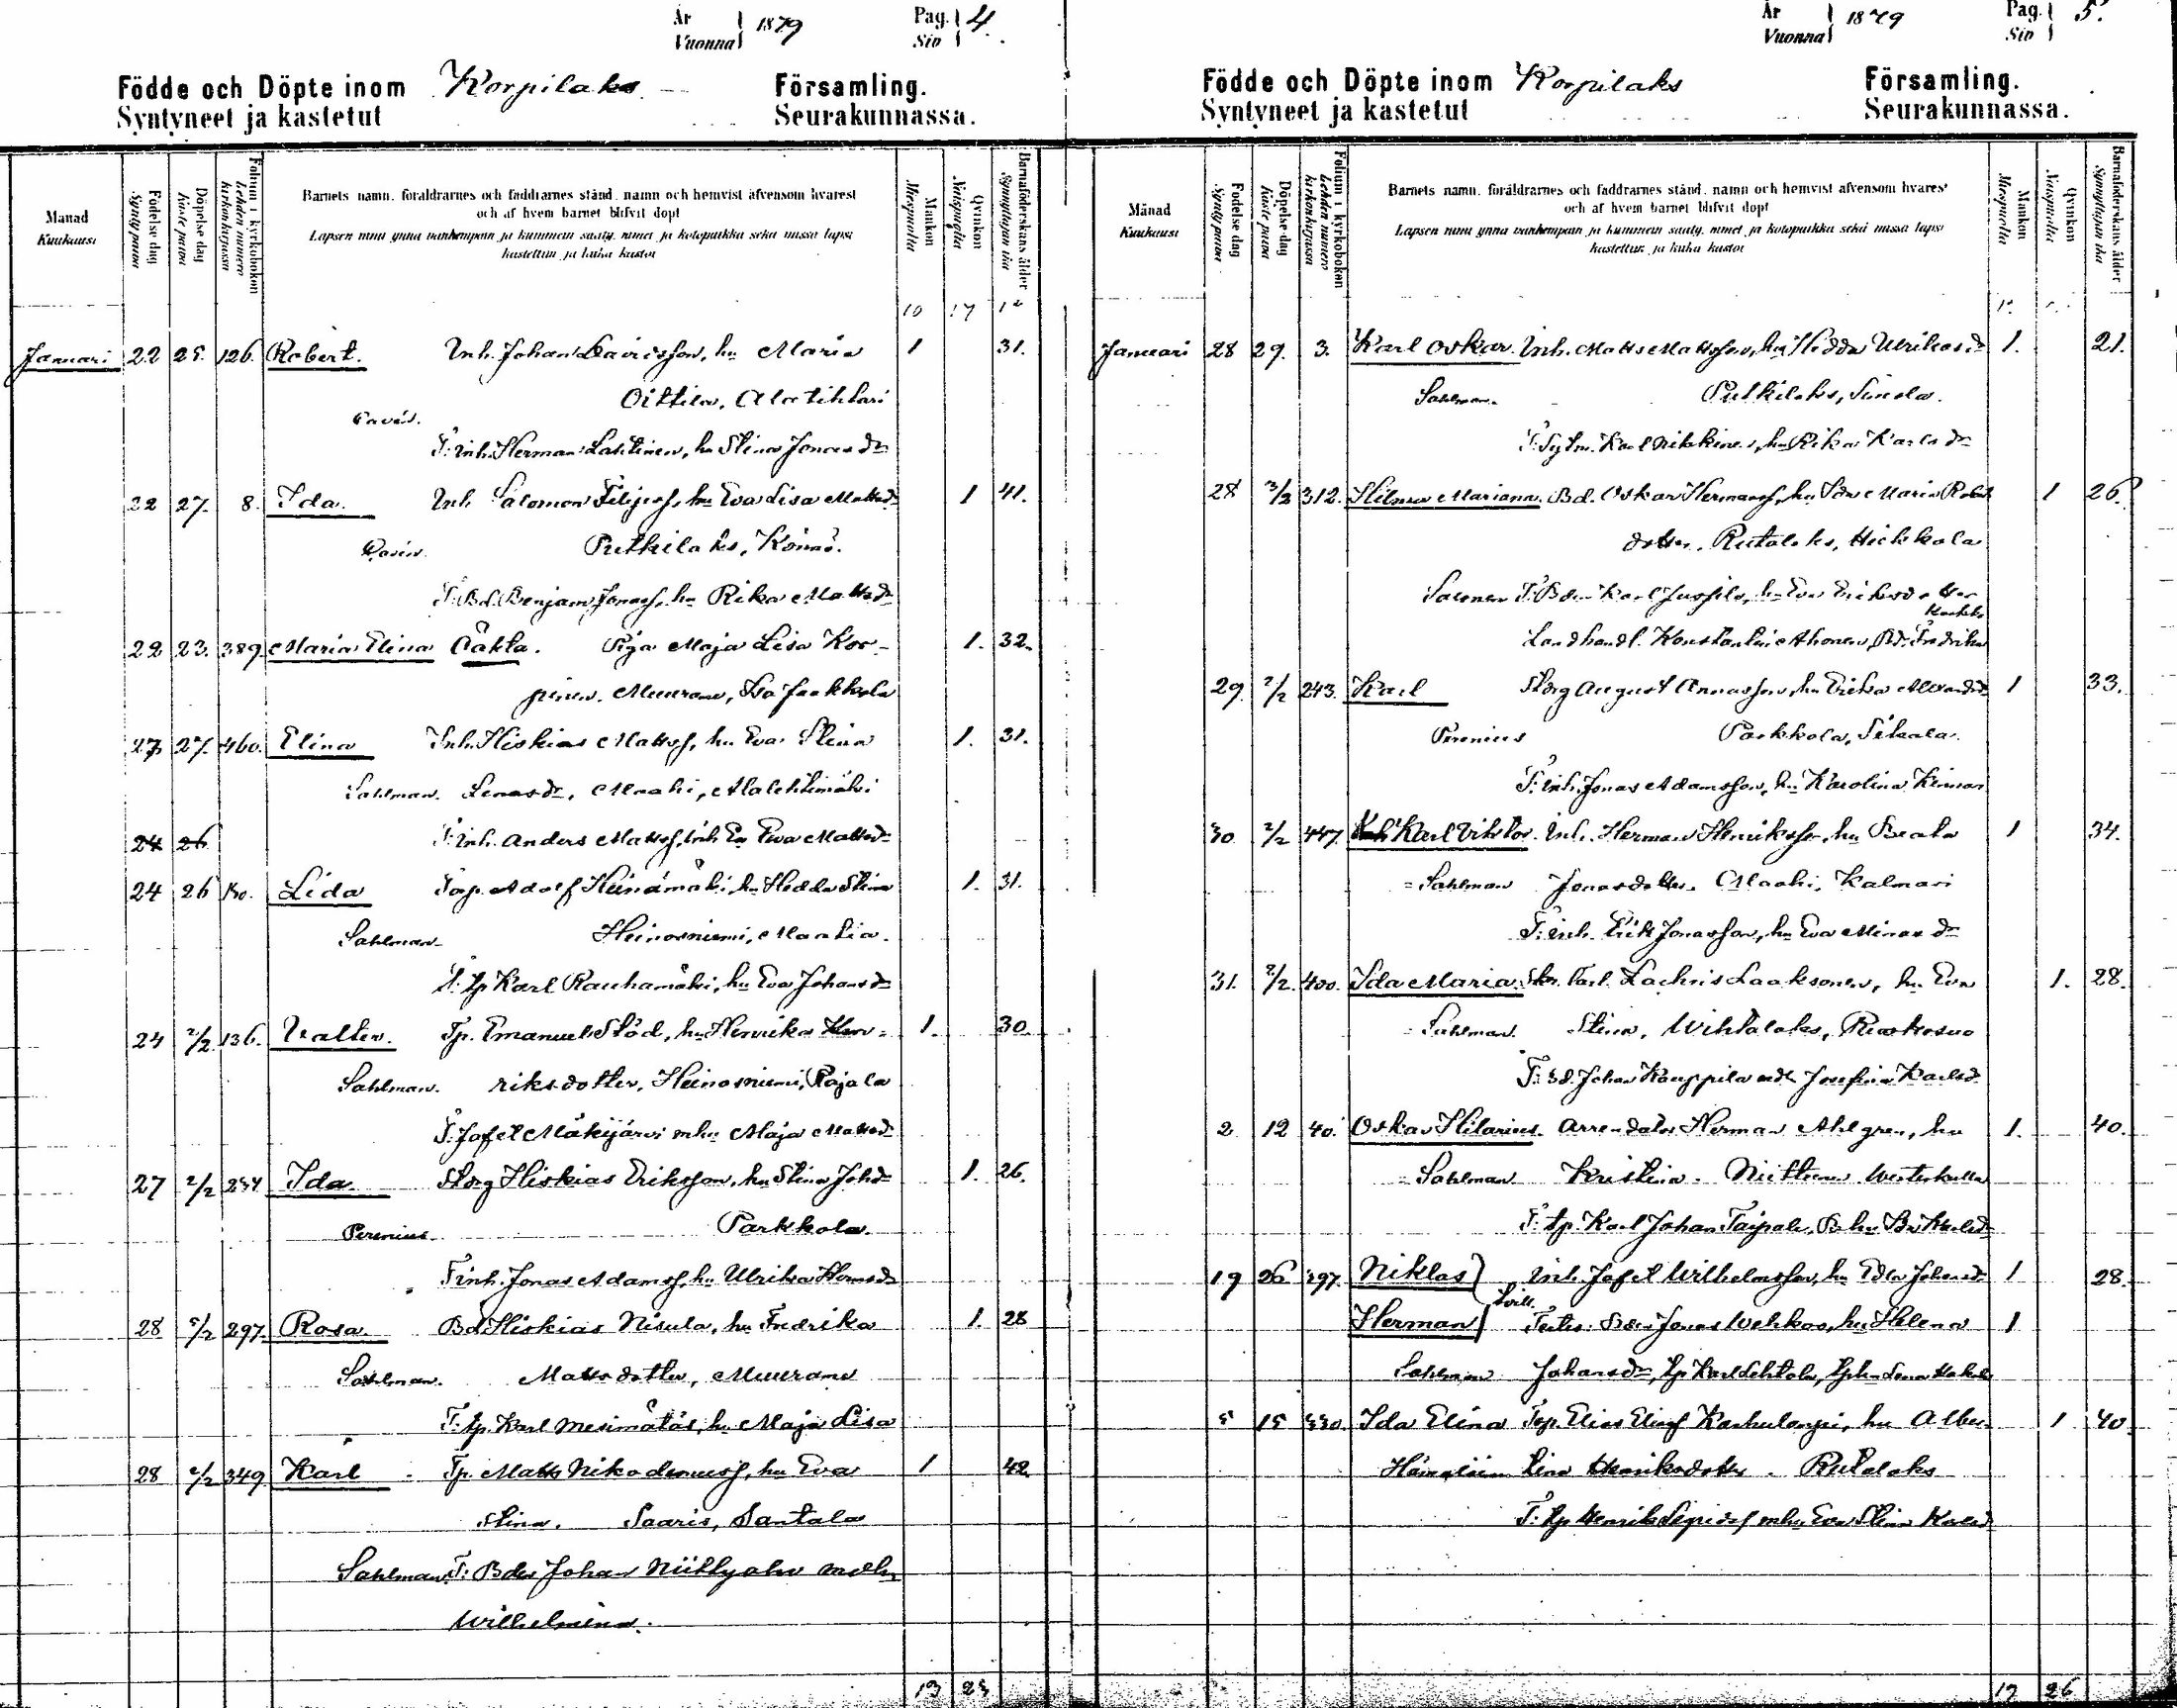 År
Vuonna 1879 Pag. 4
Siv
Födde och Döpte inom Korpilaks Församling.
Syntyneet ja kastetut Seurakunnassa.
Månad
Kuukausi
Födelse dag
Synty päivä
Döpelse dag
Kaste päivä
Folium i kyrkoboken
Lehden numero kirkonkirjassa
Barnets namn, föräldrarnes och faddrarnes stånd, namn och hemvist äfvensom hvarest
och af hvem barnet blifvit döpt
Lapsen nimi ynnä vanhempain ja kummein sääty, nimet ja kotopaikka sekä missä lapsi
kastettiin ja kuka kastoi
Mankön
Miespuolta
Qvinkön
Naispuolta
Barnaföderskans ålder
Synnyttäjän ikä
10 17
Januari 22 25. 126. Robert. Inh. Johan Davidsson, hu Maria 1 31.
Oittila,
F: inh. Herman Lahtinen, hu Stina Jonas dr
22 27. 8. Ida. Inh. Salomon Filipss. hu Eva Lisa Mattsdr 1 41.
Putkilaks, Könnö.
F: Bd. Benjam. Jonass. hu Rika Mattsdr
22 23. 389. Maria Elina Oäkta. Piga Maja Lisa Kor- 1. 32.
pinen. Muurame, Iso Jaakkola
27 27. 460. Elina Inh. Hiskias Mattss, hu Eva Stina 1. 31.
Sahlman. Lenasdr, Maahi,
24 26 F: inh. Anders Mattss, Eva Mattsdr
24 26 Lida Torp. Adolf Heinämäki, hu Hedda Stina 1. 31.
Sahlman Heinosniemi,
F: tp Karl Rauhamäki, hu Eva Johansdr
24 2/2 136. Walter. Tp. Emanuel Stöd, hu Henrika Hen- 1. 30.
Sahlman. riksdotter, Heinosniemi, Rajala
F: Jafet Mäkijärvi mhu Maja Mattsdr
27 2/2 254 Ida. Storg Hiskias Eriksson, hu Stina Johdr 1. 26.
Perenius Parkkola.
F inh. Jonas Adamss, hu Ulrika
28 5/2 297. Rosa. Bd Hiskias Nisula, hu Fredrika 1. 28
Sahlman. Mattsdotter, Muurame
F: tp. Karl Mesimäläs, hu Maja Lisa
28 2/2 349 Karl Tp. Matts Nikodemuss, hu Eva 1 42.
Stina. Saaris, Santala
Sahlman F: Bden Johan Niittyaho
Wilhelmina.
13 25
År
Vuonna 1879 Pag. 5.
Siv
Födde och Döpte inom Korpilaks Församling.
Syntyneet ja kastetut Seurakunnassa.
Månad
Kuukausi
Födelse dag
Synty päivä
Döpelse dag
Kaste päivä
Folium i kyrkoboken
Lehden numero kirkonkirjassa
Barnets namn, föräldrarnes och faddrarnes stånd, namn och hemvist äfvensom hvarest
och af hvem barnet blifvit döpt
Lapsen nimi ynnä vanhempain ja kummein sääty, nimet ja kotopaikka sekä missä lapsi
kastettiin ja kuka kastoi
Mankön
Miespuolta
Qvinkön
Naispuolta
Barnaföderskans ålder
Synnyttäjän ikä
Januari 28 29. 3. Karl Oskar. Inh. Matts Mattsson, hu Hedda Ulrikasdr 1. 21.
Sahlman. Putkilaks, Sinola.
F: Karl Nikkinen, hu Rika Karls dr
28 3/2 312. Hilma Mariana. Bd. Oskar Hermanss, hu Ida Maria Robert 1 26.
dotter. Rutalaks, Heikkola
Salonen F: Bden Karl Jussila, hu Eva Eriksdotter
Landhandl. Konstantin Ahonen, Fredrika
29. 2/2 243. Karl Storg August Annasson, hu Erika 1 33.
Perenius Parkkola, Sikaala.
F: inh. Jonas Adamsson, hu Karolina
30 2/2 447. Karl Viktor. Inh. Herman Henriksson, hu Beata 1 34.
Sahlman Jonasdotter. Maahi, Kalmari
F: inh. Erik Jonasson, hu Eva dr
31. 2/2. 400. Ida Maria. Zachris Laaksonen, hu Eva 1. 28.
Sahlman. Stina, Wihtalaks, Ruokosuo
F: Bd. Johan Kauppila Josefina Karlsd.
2 12 40. Oskar Hilarius. Arrendator Herman Ahlgren, hu 1. 40.
Sahlman Kristina. Niittunen Westerkulla
F: tp. Karl Johan Taipale,
19 26 297. Niklas Inh. Jafet Wilhelmsson, hu Edla Johansdr 1 28.
tvill.
Herman Testes: Jonas Wehkoo, hu Helena 1
Sahlman Johansdr, tp Karl Lehtola,
5 15 330. Ida Elina Torp. Elias Eliass Karhulampi, hu Alber- 1 40
tina Henriksdotter. Rutalaks
F: tp Henrik mhu Eva Stina Karlsd
17 26